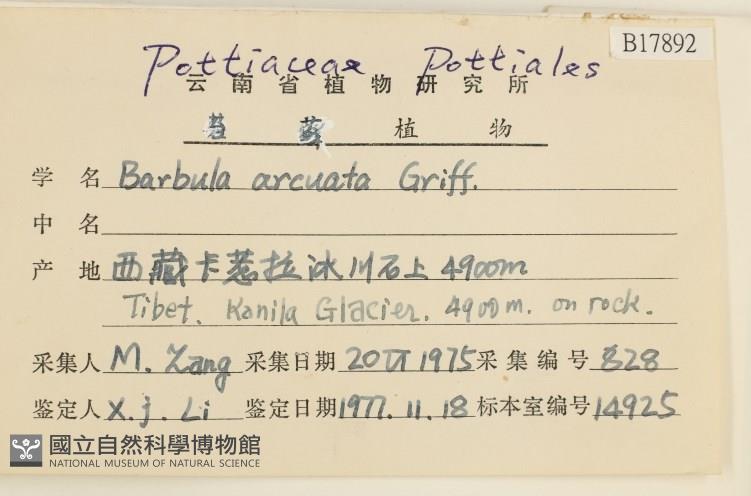 B17892
Pottiaceae Pottiales
云南省植物研究所
苔藓植物
学名 Barbula arcuata Griff.
中名
产地 西藏卡惹拉冰川石上 4900m
Tibet. Kanila Glacier. 4900m. on rock.
采集人 M. Zang 采集日期 20 VI 1975 采集编号 828
鉴定人 X. j. Li 鉴定日期 1977. 11. 18 标本室编号 14925
國立自然科學博物館
NATIONAL MUSEUM OF NATURAL SCIENCE